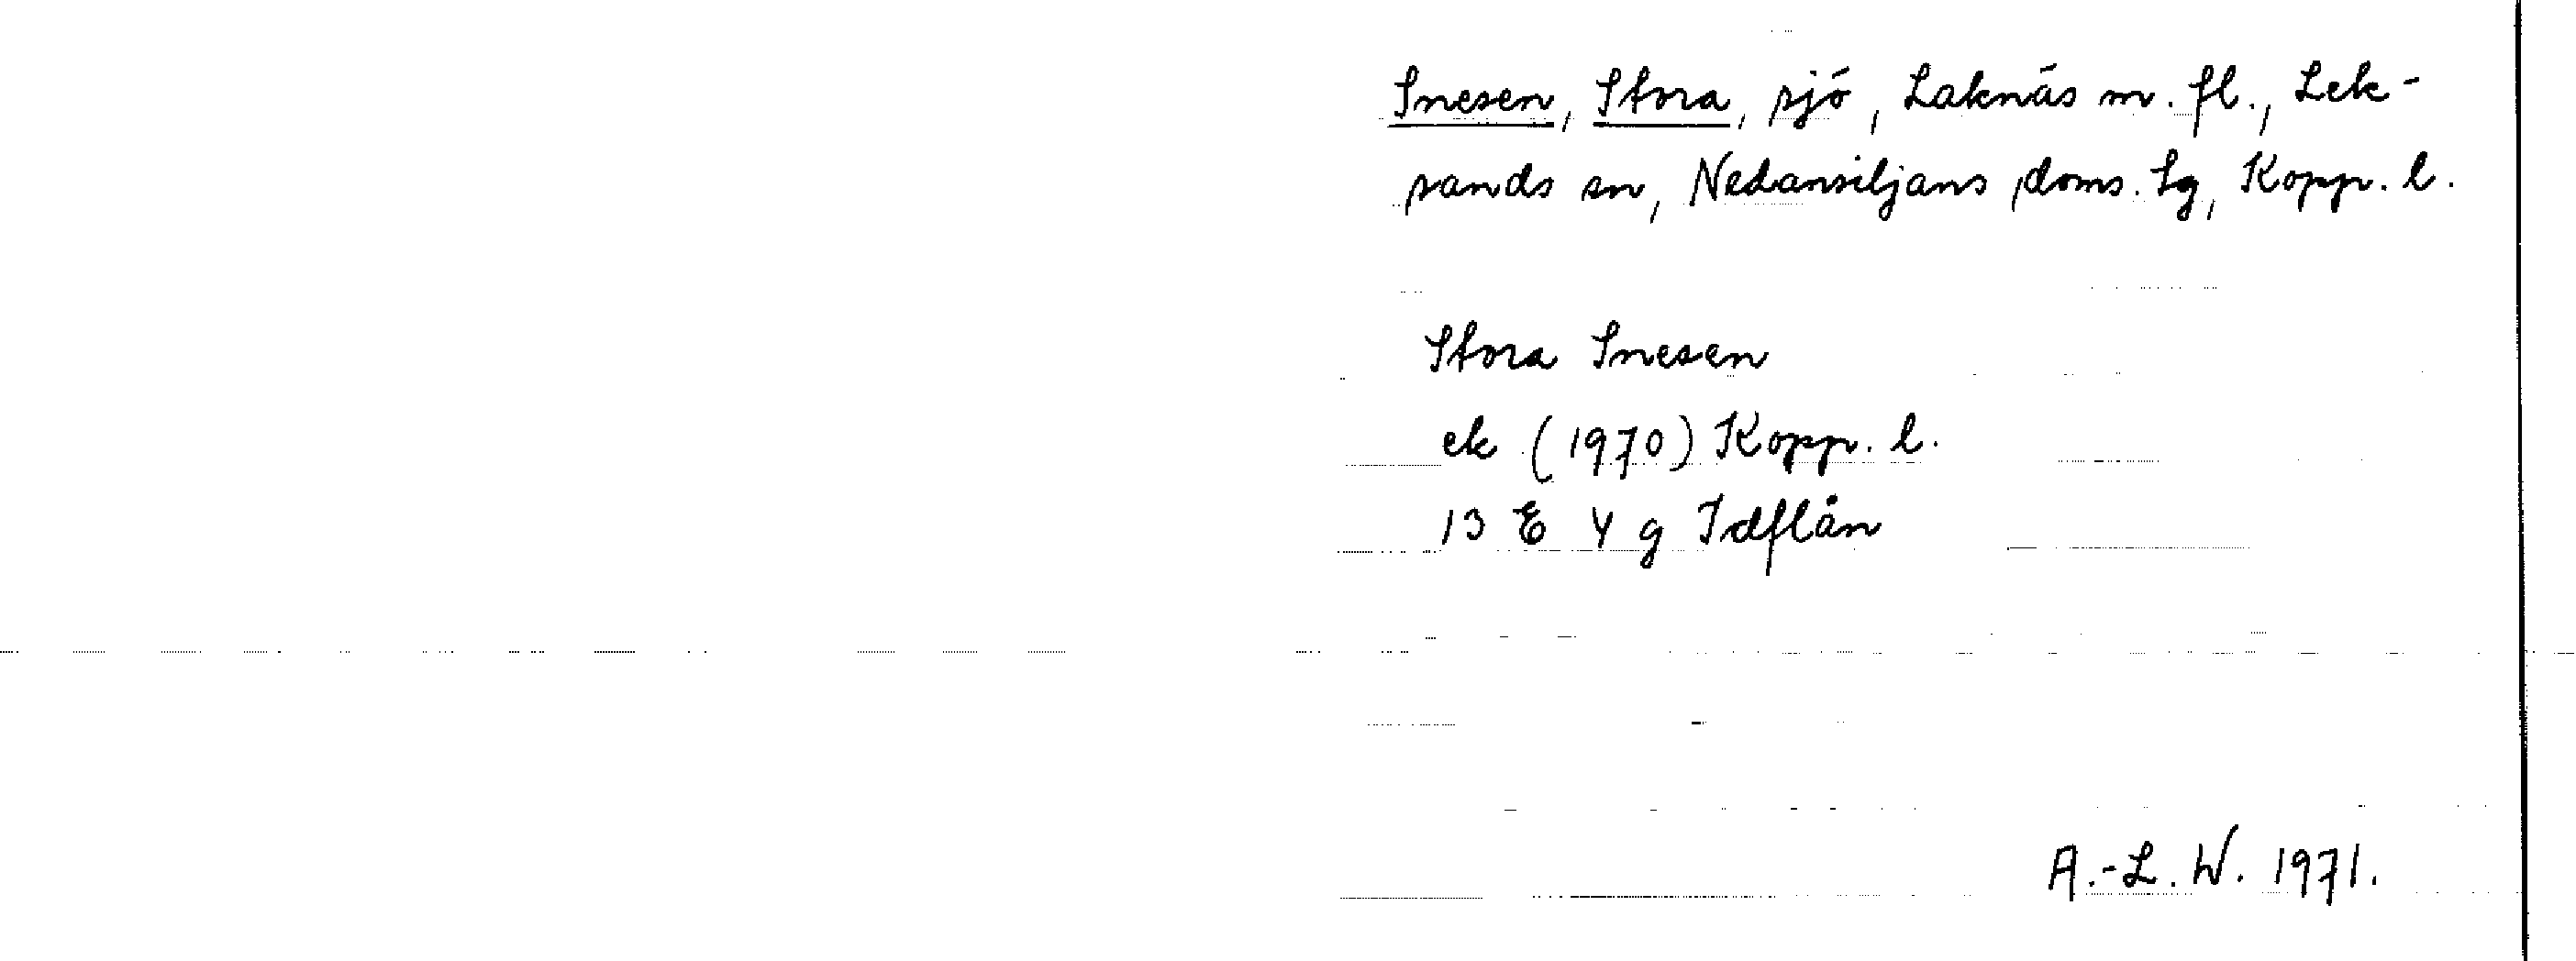 Snesen, Stora, sjö, Laknäs m. fl., Lek-
sands sn, Nedansiljans doms. sg, Kopp. l.
Stora Snesen
ek (1970) Kopp. l.
13 E 4 g Idflån
A.-L. W. 1971.